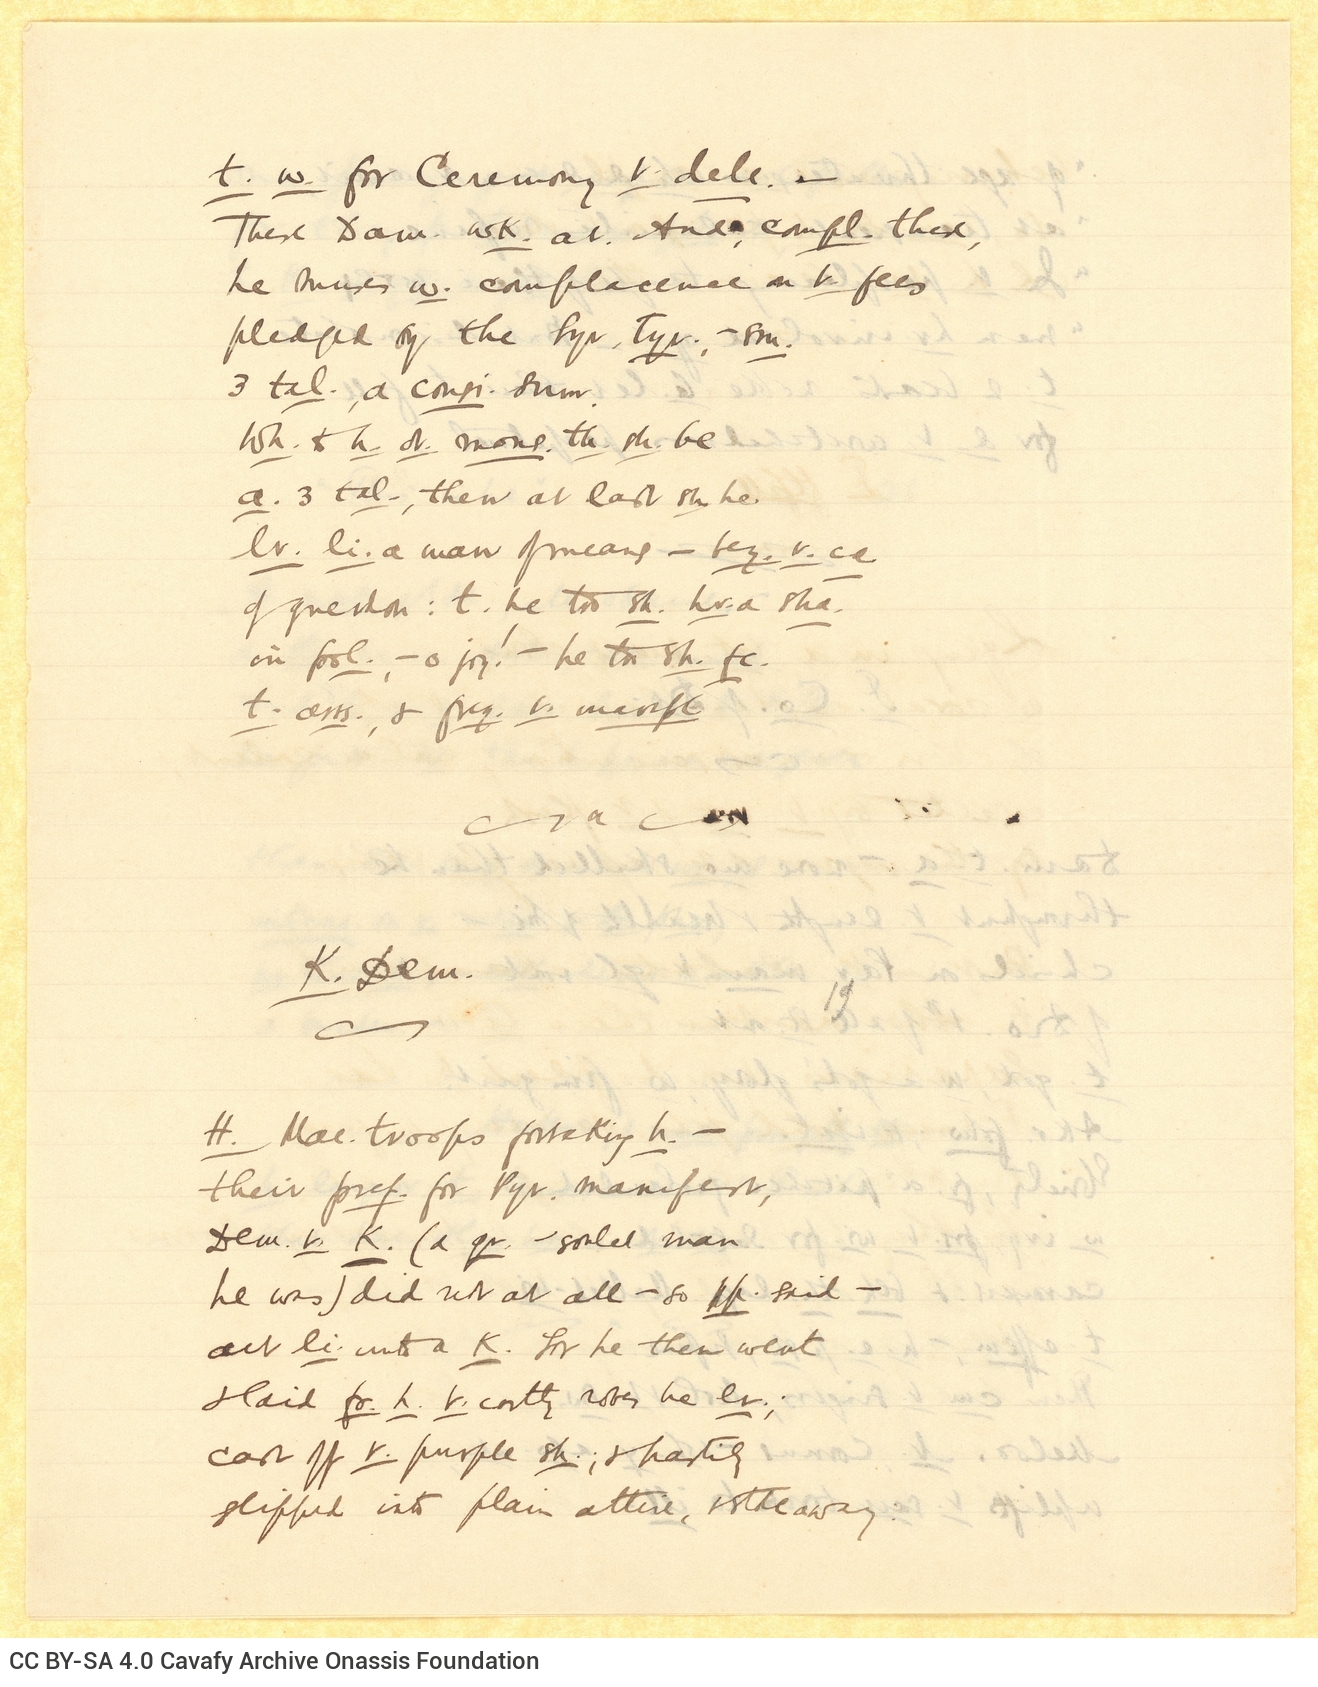 t. w. for Ceremony t. dele. —
These Dam. wk. at. And, compl. these,
he muses w. complacence on t. fees
pledged by the Syr. Tyr., — sm.
3 tal., a consi. sum.
Wh. t. h. ot. mone. th. sh. be
a. 3 tal., then at last sh. he
lv. li. a man of means — bey. t. ca
of question: t. he too sh. hv. a sha.
in fool., — o joy! — he too sh. fc.
t. ass., & freq. t. market
K. Dem.
19
H. Mac. troops forsaking h. —
their pref. for Pyr. manifest,
Dem. t. K. (a gr. -souled man
he was) did not at all — so pp. said —
act li. unto a K. For he then went
& laid fr. h. t. costly robes he lv.;
cast off t. purple sh.; & hastily
slipped into plain attire, & stole away.
CC BY-SA 4.0 Cavafy Archive Onassis Foundation